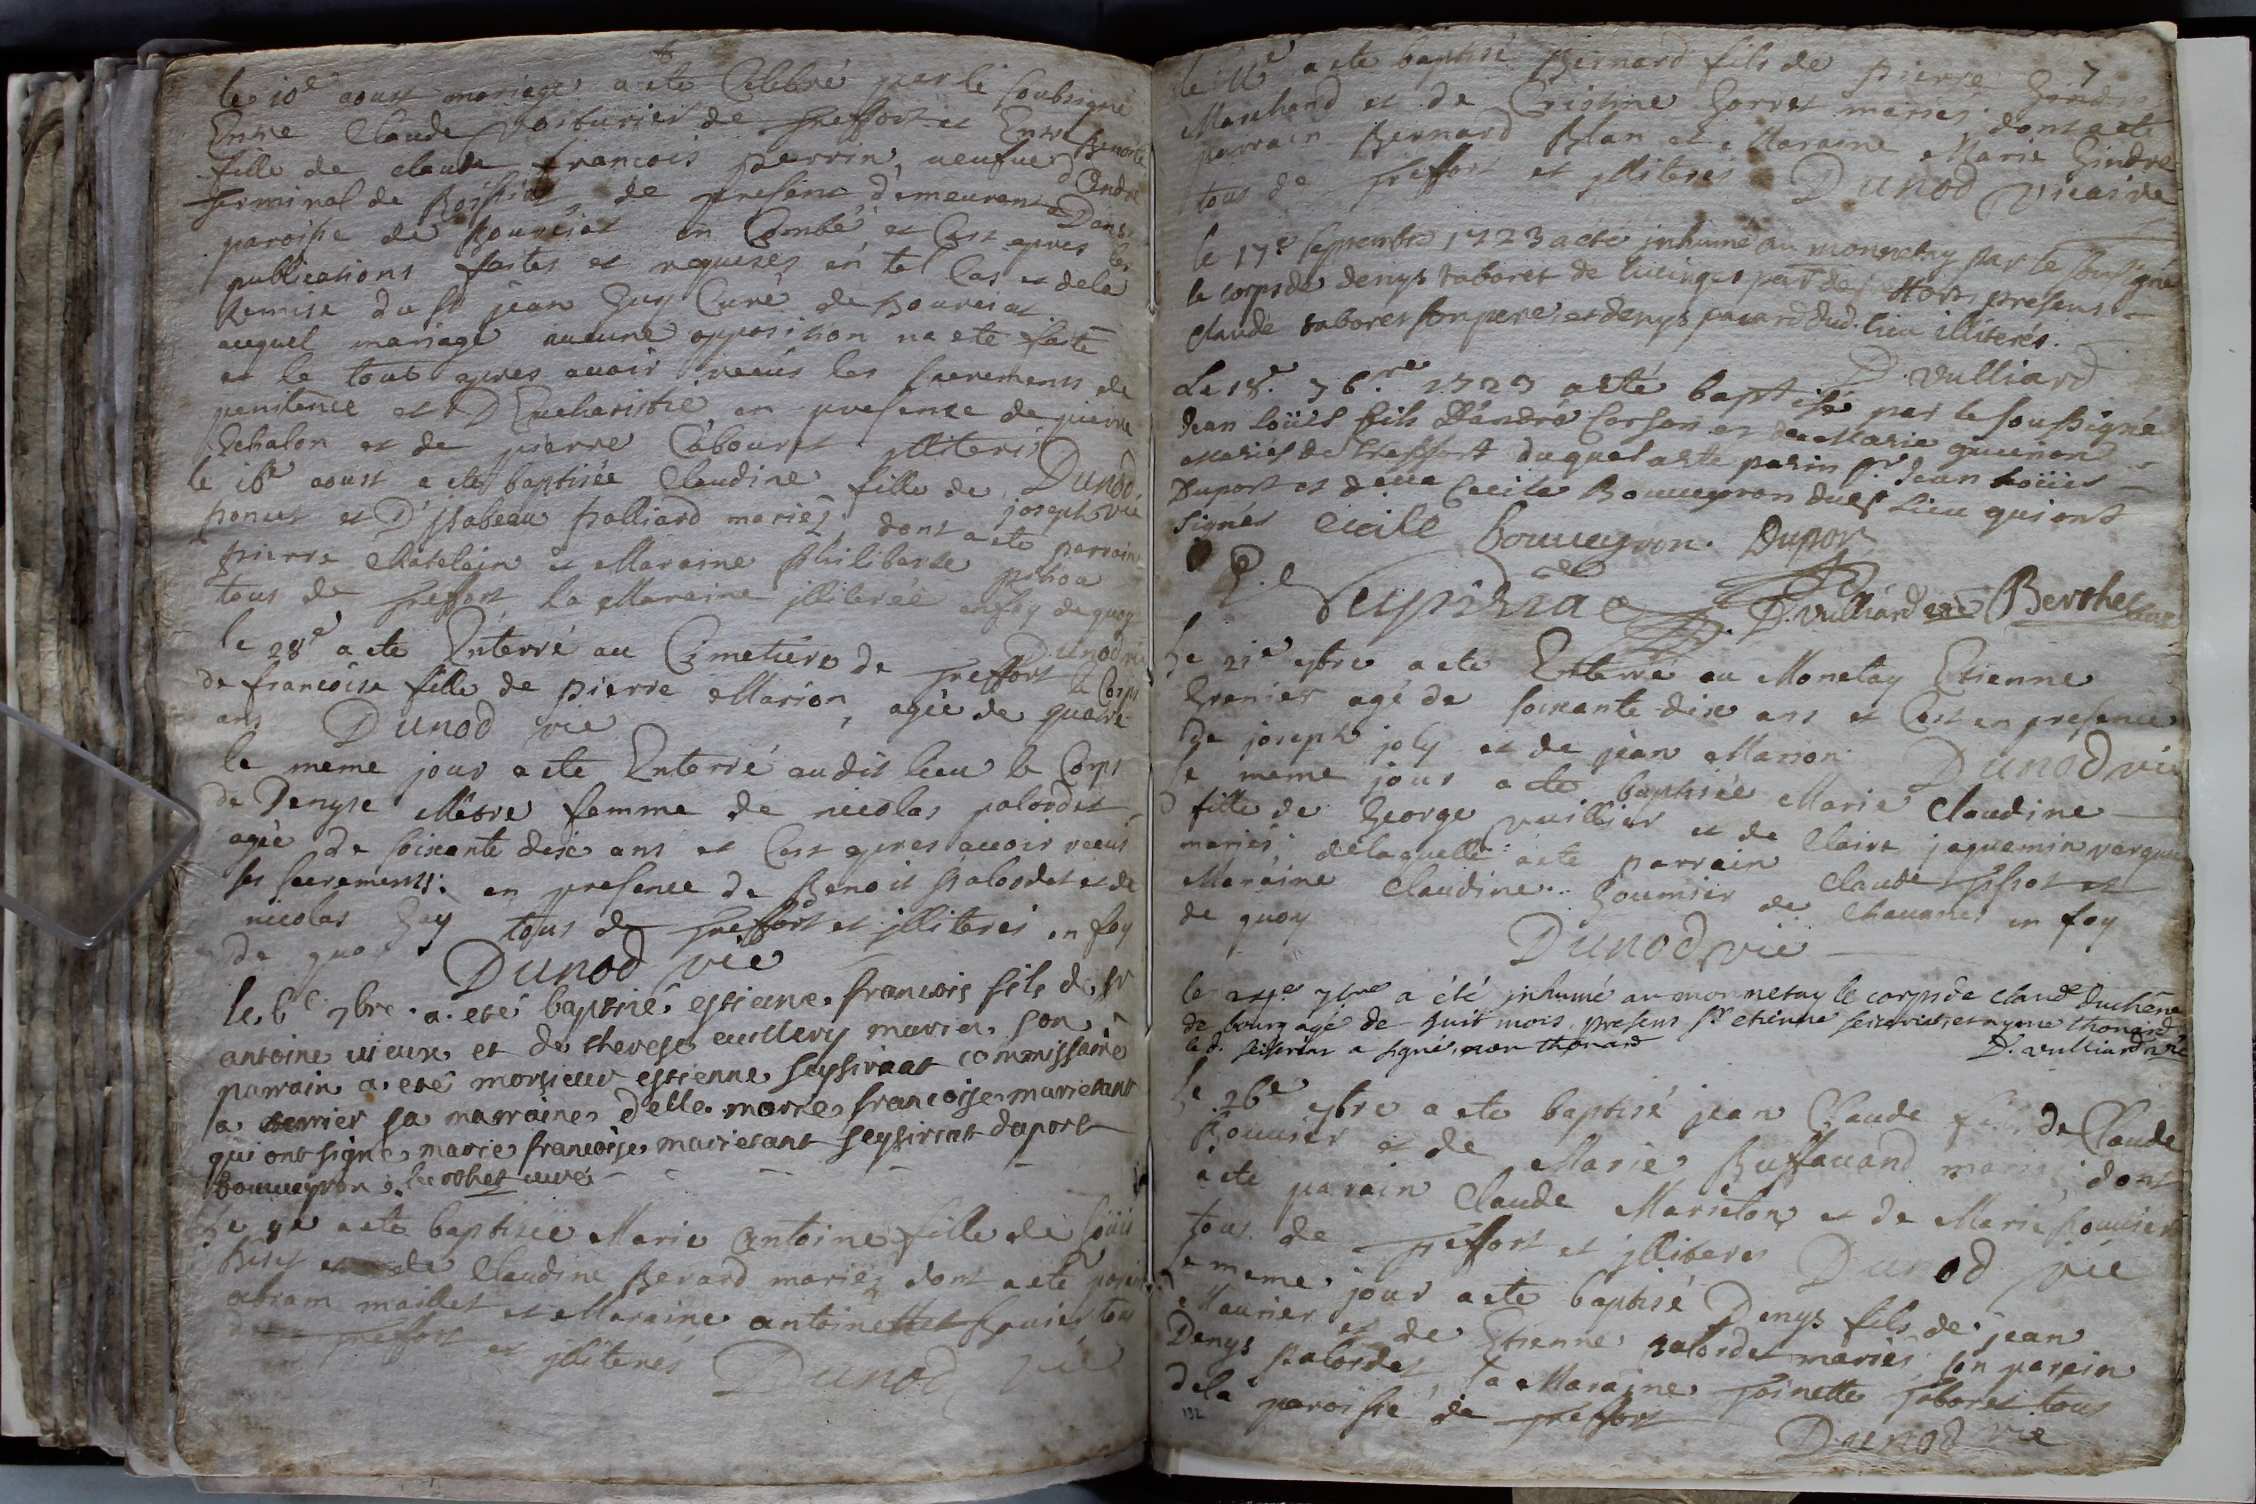 le 10e aoust mariage a ete Celebré par le soubsigné
Entre Claude voiturier de treffort et Entre Benoite
fille de claude francois perrin, veufue d'André
terminal de Roissiat de present demeurant Dans
paroisse de Bourcia en Combé et C'est apres les
publications faites et requises en tel Cas et dela
Remise du Sr jean Guy Curé de Bourcia
auquel mariage aucune opposition na ete faite
et le tout apres avoir receus les sacrements de
penitence et D'Eucharistie en presence de pierre
Échalon et de pierre Cabouret illiteré
Dunod vic
le 16e aoust a ete baptisée Claudine fille de joseph
poncet et D'ysabeau palliard mariez dont a ete parrain
pierre Chatelain et Maraine philiberte
tous de treffort la Maraine illiterée en foy de quoy
Dunod vic
le 28e a ete Enterré au Cimetiere de treffort le Corps
de francoise fille de pierre Marion, agée de quatre
ans Dunod vic
le meme jour a ete Enterré audit lieu le Corps
de Denyse Mêtre femme de nicolas palordet
agée de soixante dix ans et C'est apres avoir receus
ses sacrements: en presence de Benoit palordet et de
nicolas Gay tous de treffort et illiteres en foy
de quo Dunod vic
le 6e 7bre a eté baptisé estienne francois fils de sr
antoine vieux et de therese cuillery maries son
parrain a eté monsieur estienne seysiriat commissaire
a terrier sa marraine delle marie francoise marietant
qui ont signé marie francoise marietant seysiriat duport
bouveyron berthet curé
Le 9e a ete baptisée Marie antoine fille de Loüis
Biset et de Claudine Berard mariez dont a ete parain
abram maillet et Maraine antoinette tous
de treffort et illiterés Dunod vic
7
le 11e a ete baptisé Bernard fils de pierre Gindre
Marchand et de Cristine Gorret mariés dont a ete
parrain Bernard Blan et Maraine Marie Gindre
tous de treffort et illiterés Dunod vicaire
le 17e septembre 1723 a eté inhumé au monnetay par le soussigné
le corps de denys taboret de lucinges par de treffort presens
claude taboret son pere et denys pacard dud. lieu illiterés.
D. Vulliard
Le 18.e 7b.re 1723 a eté baptisé par le soussigné
Jean Loüis fils d'André Corson et de Marie guienon
Mariés de treffort duquel a eté parin sr Jean Loüis
Duport et delle Cecile Bouveyron dud lieu qui ont
signés Cecile bouveyron. Duport
Seysiriat D. Vulliard Berthet curé
Le 21e 7bre a ete Enterré au Monetay Etienne
Grenier agé de soixante dix ans et C'est en presence
de joseph joly et de jean Marion Dunod vic
le meme jour a ete baptisée Marie Claudine
fille de George vuillier et de Claire jaquemin
mariés, delaquelle a ete parrain Claude et
Maraine Claudine Goumier de Chavanes en foy
de quoy Dunod vic
le 24e 7bre a été inhumé au monnetay le corps de claude duchêne
de bourg agé de huit mois presens sr etienne seisiriat et ayme thonard
led. seisiriat a signé, non thonard D. Vulliard
Le 26e 7bre a ete baptisé jean Claude fils de Claude
Bouvier et de Marie Buffavand mariés, dont
a ete parain Claude Marieton, et de Marie Bouvier
tous de treffort et illiteres Dunod vic
le meme jour a ete baptisé Denys fils de jean
Maurier et de Etienne palordet mariés son parein
Denys palordet, la Maraine toinette taboret tous
dela paroisse de treffort
Dunod vic
132